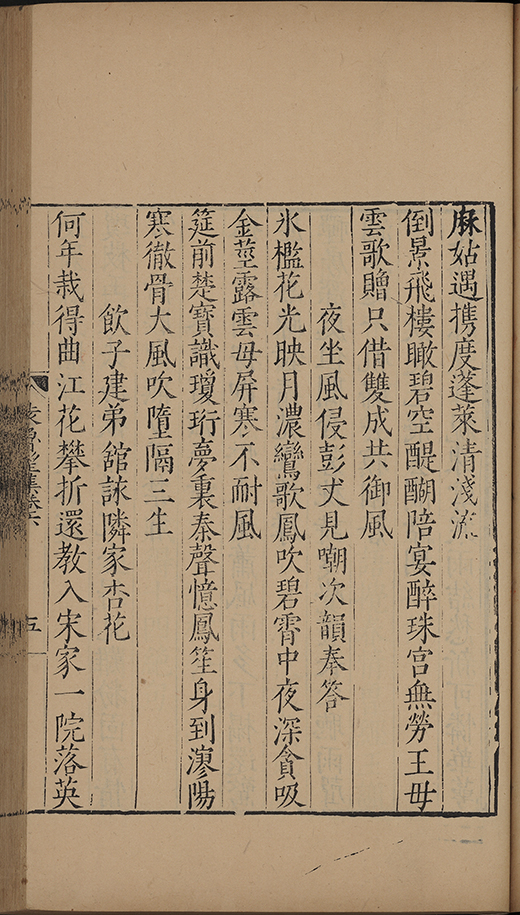 麻姑遇携度蓬萊清淺流
倒景飛樓瞰碧空醍醐陪宴醉珠宮無勞王母
雲歌贈只借雙成共御風
夜坐風侵彭丈見嘲次韻奉答
氷檻花光映月濃鸞歌鳳吹碧霄中夜深貪吸
金莖露雲母屏寒不耐風
筵前楚寶識瓊珩夢裏秦聲憶鳳笙身到㵳陽
寒徹骨大風吹墮隔三生
飲子建弟舘詠隣家杏花
何年栽得曲江花攀折還教入宋家一院落英
五